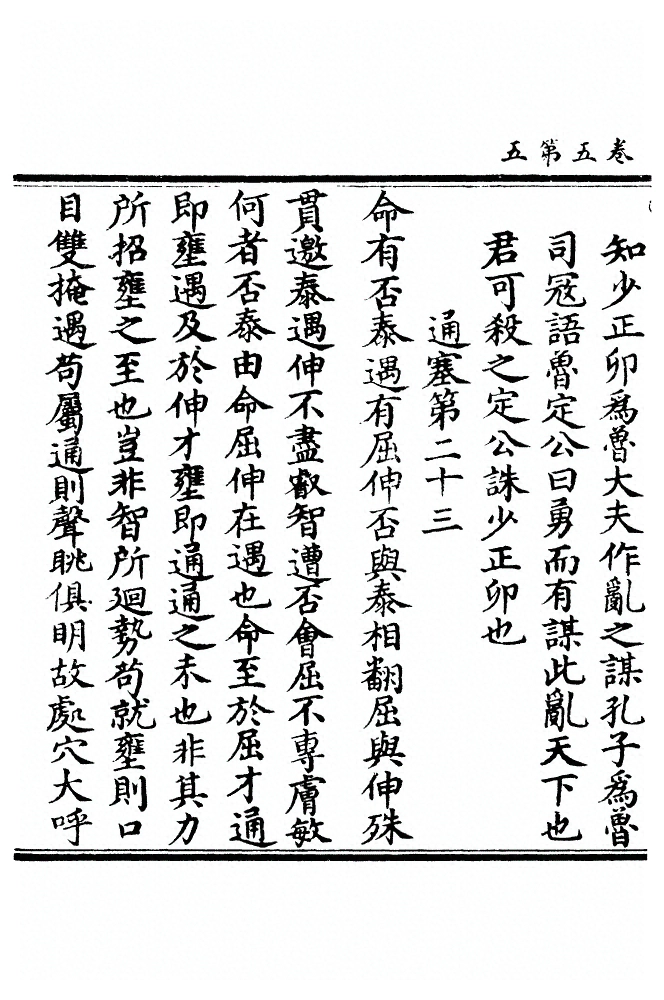 卷五第五
知少正卯爲魯大夫作亂之謀孔子爲魯
司冦語魯定公曰勇而有謀此亂天下也
君可殺之定公誅少正卯也
通塞第二十三
命有否泰遇有屈伸否與泰相翻屈與伸殊
貫邀泰遇伸不盡叡智遭否會屈不專膚敏
何者否泰由命屈伸在遇也命至於屈才通
即壅遇及於伸才壅即通通之未也非其力
所招壅之至也豈非智所迴勢苟就壅則口
目雙掩遇苟屬通則聲眺俱明故處穴大呼